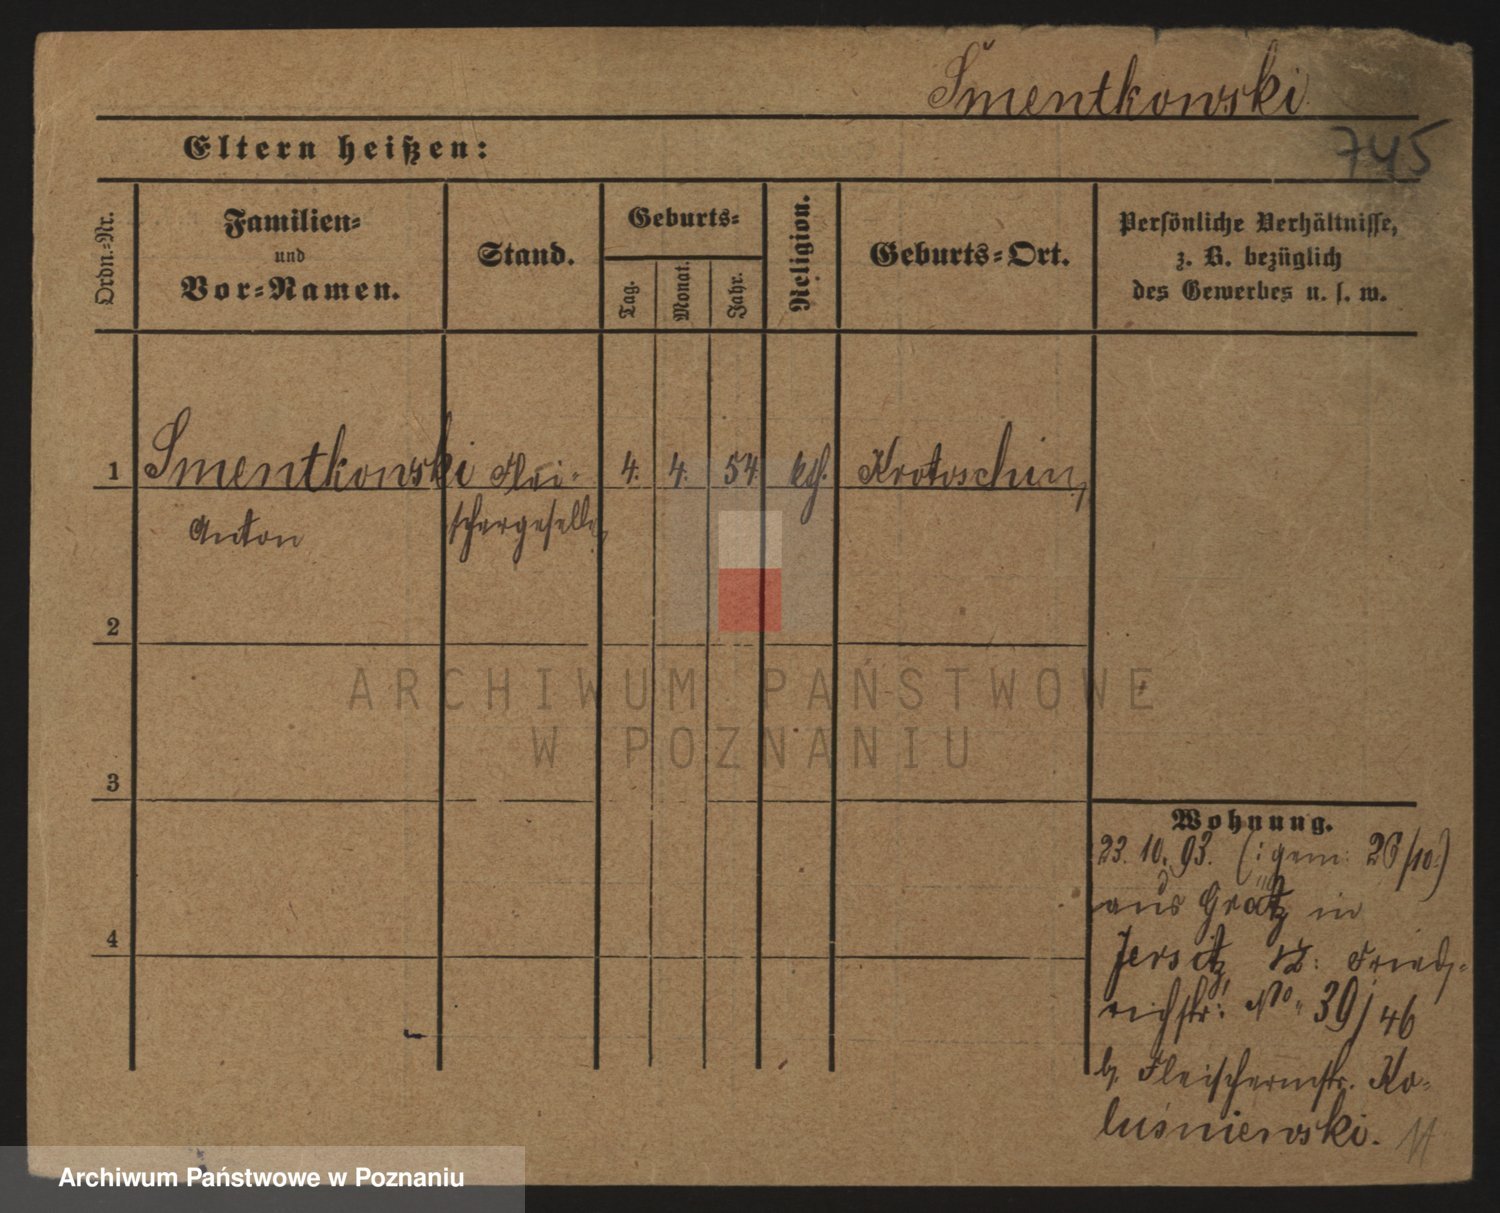 Śmentkowski
745
Eltern heißen:
Ordn.-Nr.
Familien-
und
Vor-Namen.
Stand.
Geburts-
Tag.
Monat.
Jahr.
Religion.
Geburts-Ort.
Persönliche Verhältnisse,
z. B. bezüglich
des Gewerbes u. s. w.
1 Smentkowski Flei- 4. 4. 54 kth. Krotoschin,
Anton schergeselle,
2
3
4
ARCHIWUM PAŃSTWOWE
W POZNANIU
Wohnung.
23. 10. 93. (: gem: 26/10:)
aus Grätz in
Jersitz Fried-
richstr: No. 39/46
b. Fleischermstr. Ko-
luśniewski.
Archiwum Państwowe w Poznaniu